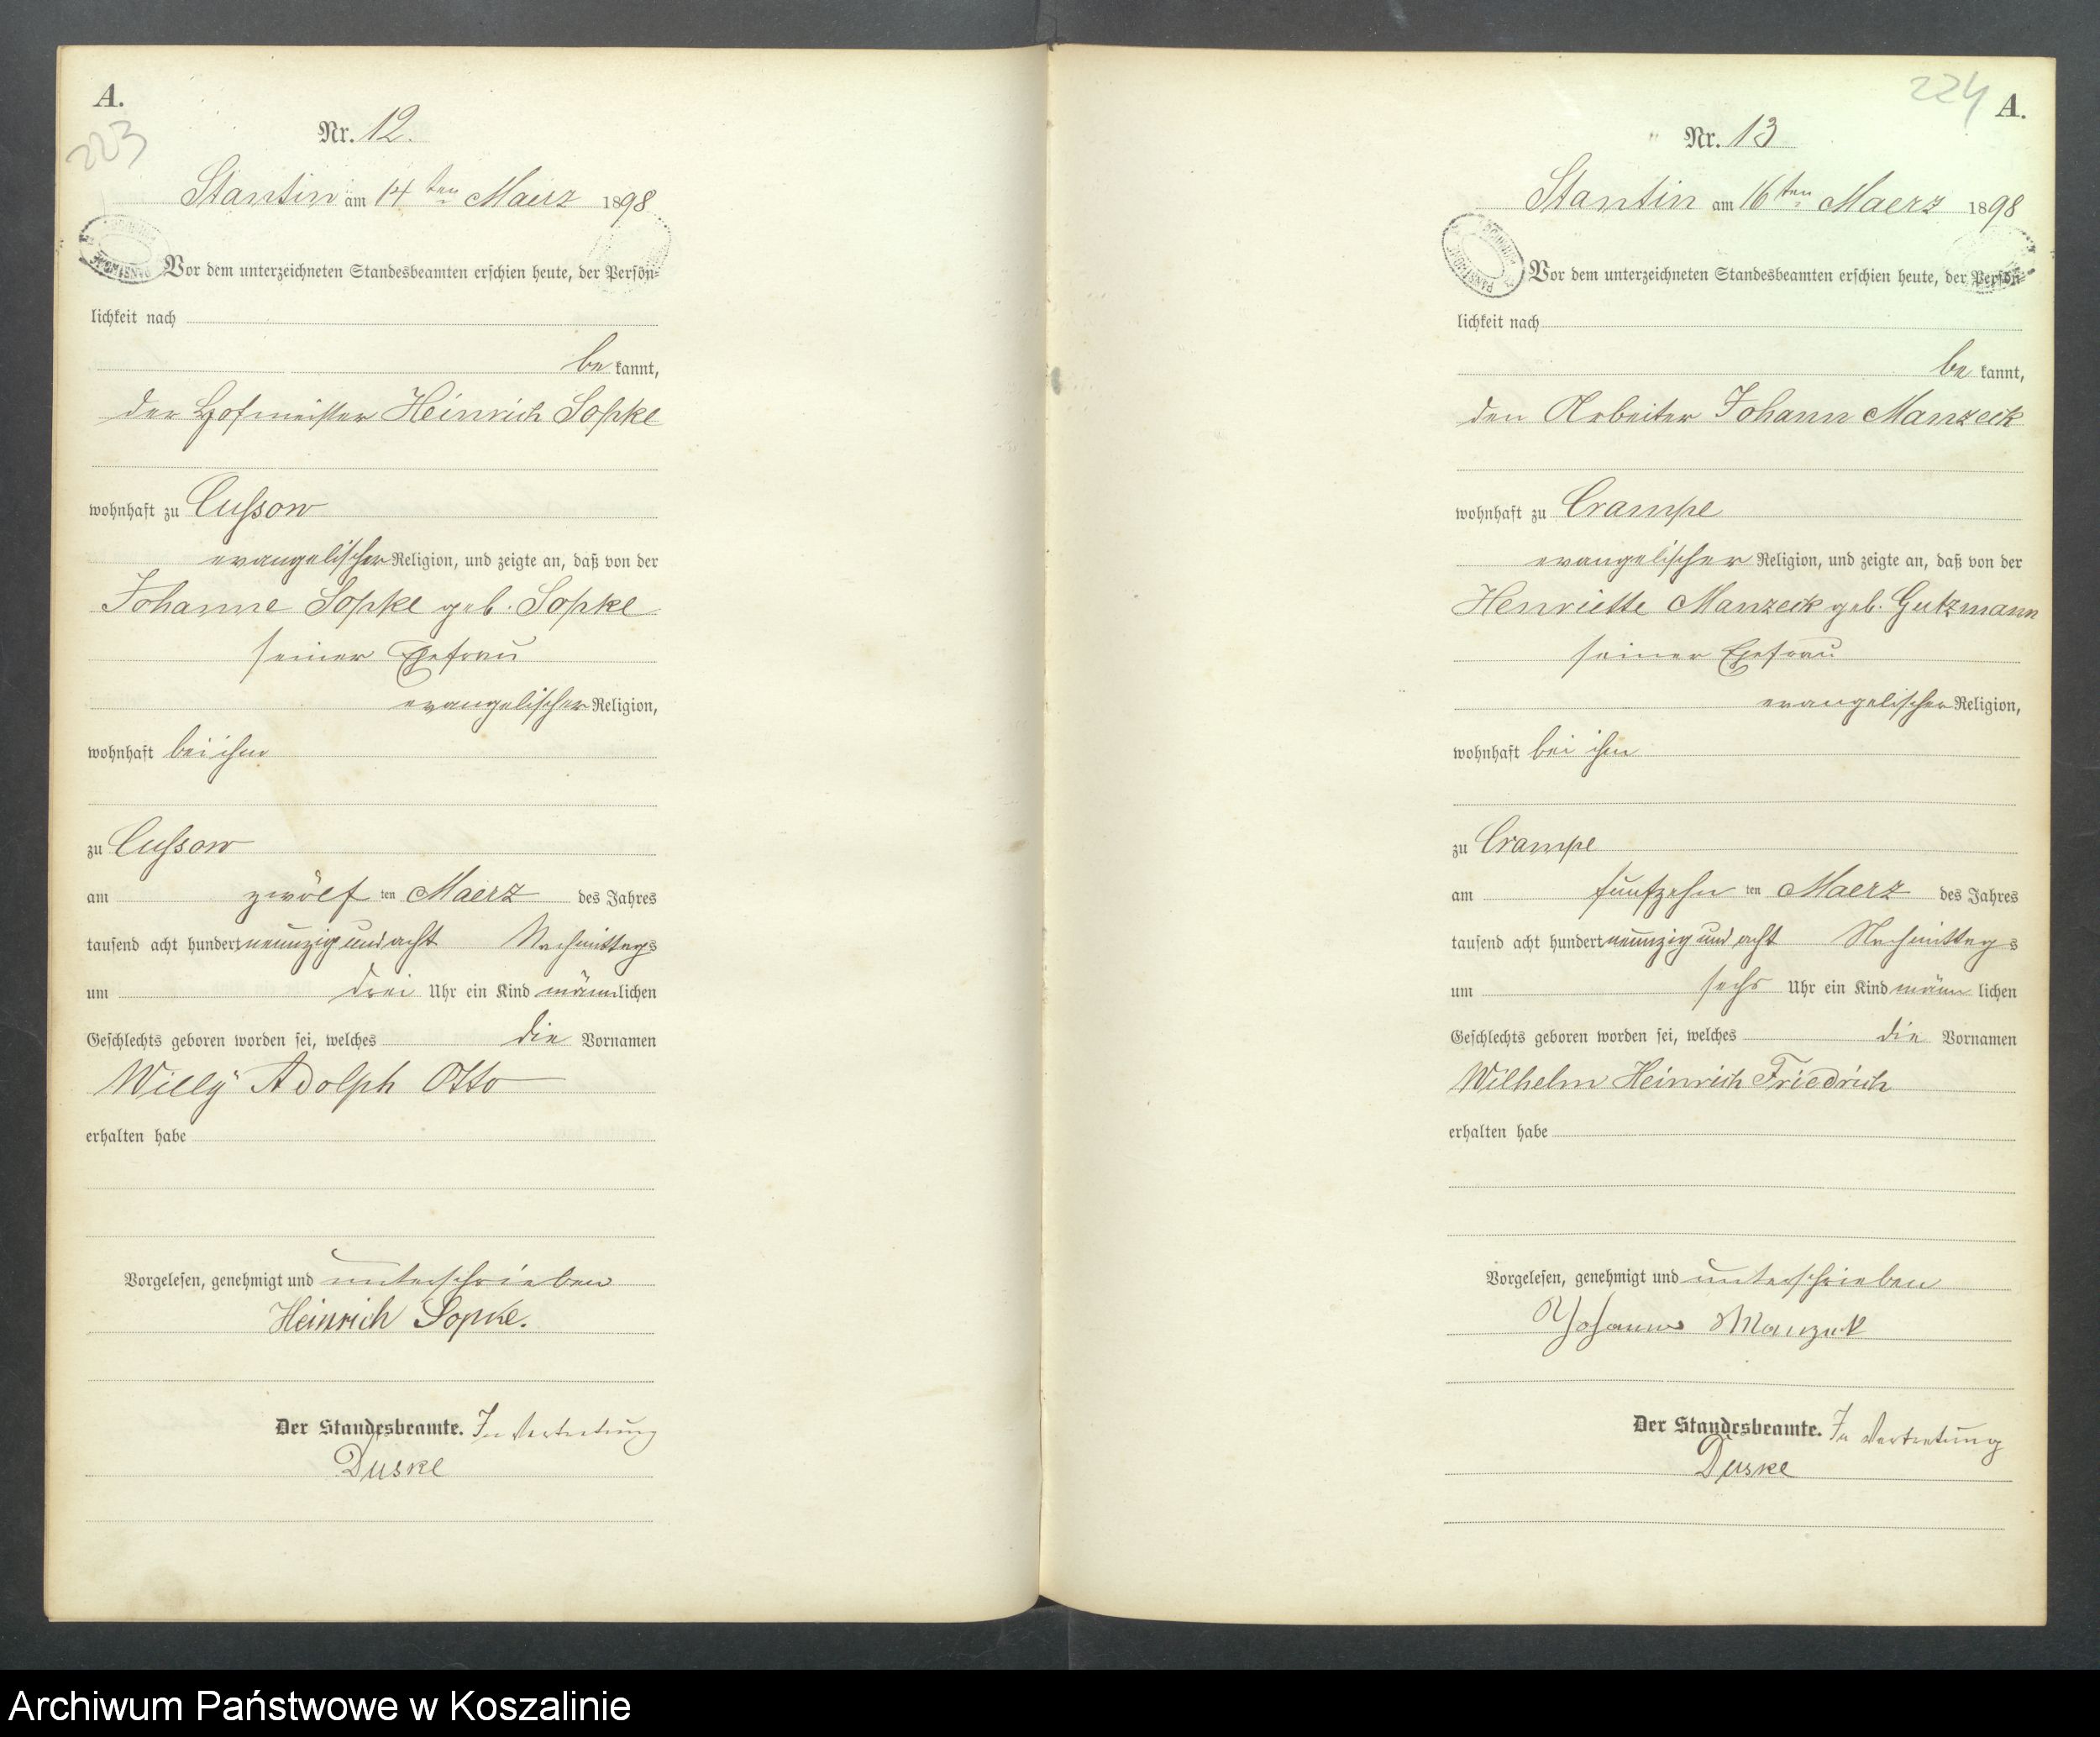 A.
223
Nr. 12.
Stantin am 14ten Maerz 1898
Vor dem unterzeichneten Standesbeamten erschien heute, der Persön-
lichkeit nach
be kannt,
der Hofmeister Heinrich Sopke
wohnhaft zu Cussow
evangelischer Religion, und zeigte an, daß von der
Johanne Sopke geb. Sopke
seiner Ehefrau
evangelischer Religion,
wohnhaft bei ihm
zu Cussow
am zwölf ten Maerz des Jahres
tausend acht hundert neunzig und acht Nachmittags
um drei Uhr ein Kind männlichen
Geschlechts geboren worden sei, welches die Vornamen
Willy Adolph Otto
erhalten habe
Vorgelesen, genehmigt und unterschrieben
Heinrich Sopke.
Der Standesbeamte. In Vertretung
Duske
224
A.
Nr. 13
Stantin am 16ten Maerz 1898
Vor dem unterzeichneten Standesbeamten erschien heute, der Persön-
lichkeit nach
be kannt,
den Arbeiter Johann Manzeck
wohnhaft zu Crampe
evangelischer Religion, und zeigte an, daß von der
Henriette Manzeck geb. Gutzmann
seiner Ehefrau
evangelischer Religion,
wohnhaft bei ihm
zu Crampe
am fünfzehn ten Maerz des Jahres
tausend acht hundert neunzig und acht Nachmittags
um sechs Uhr ein Kind männ lichen
Geschlechts geboren worden sei, welches die Vornamen
Wilhelm Heinrich Friedrich
erhalten habe
Vorgelesen, genehmigt und unterschrieben
Johann Manzeck
Der Standesbeamte. In Vertretung
Duske
Archiwum Państwowe w Koszalinie